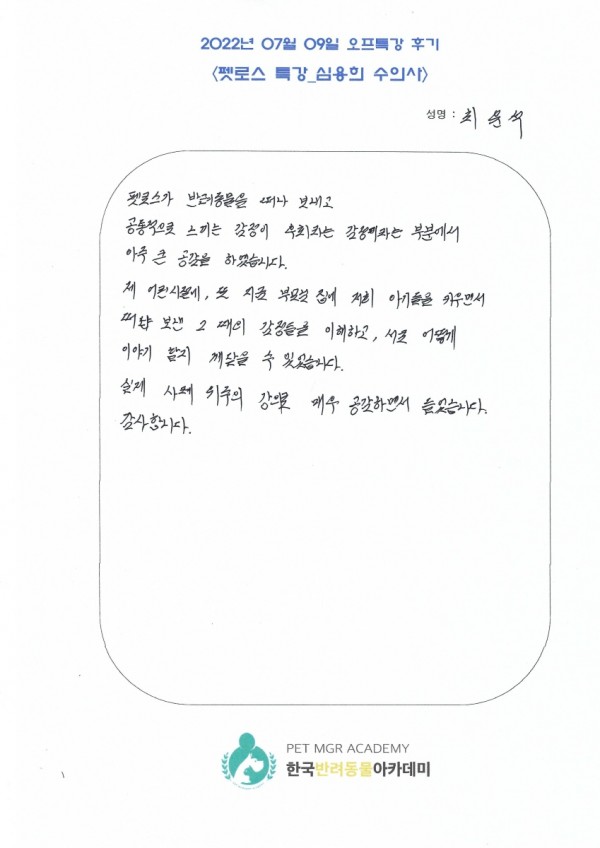 2022년 07월 09일 오프특강 후기
<펫로스 특강_심용희 수의사>
성명 : 최문석
펫로스가 반려동물을 떠나 보내고
공통적으로 느끼는 감정이 후회라는 감정이라는 부분에서
아주 큰 공감을 하였습니다.
제 어린시절에, 또 지금 부모님 집에 저희 아기들을 키우면서
떠나 보낸 그 때의 감정들을 이해하고, 서로 어떻게
이야기 할지 깨달을 수 있었습니다.
실제 사례 위주의 강의로 매우 공감하면서 들었습니다.
감사합니다.
PET MGR ACADEMY
한국반려동물아카데미